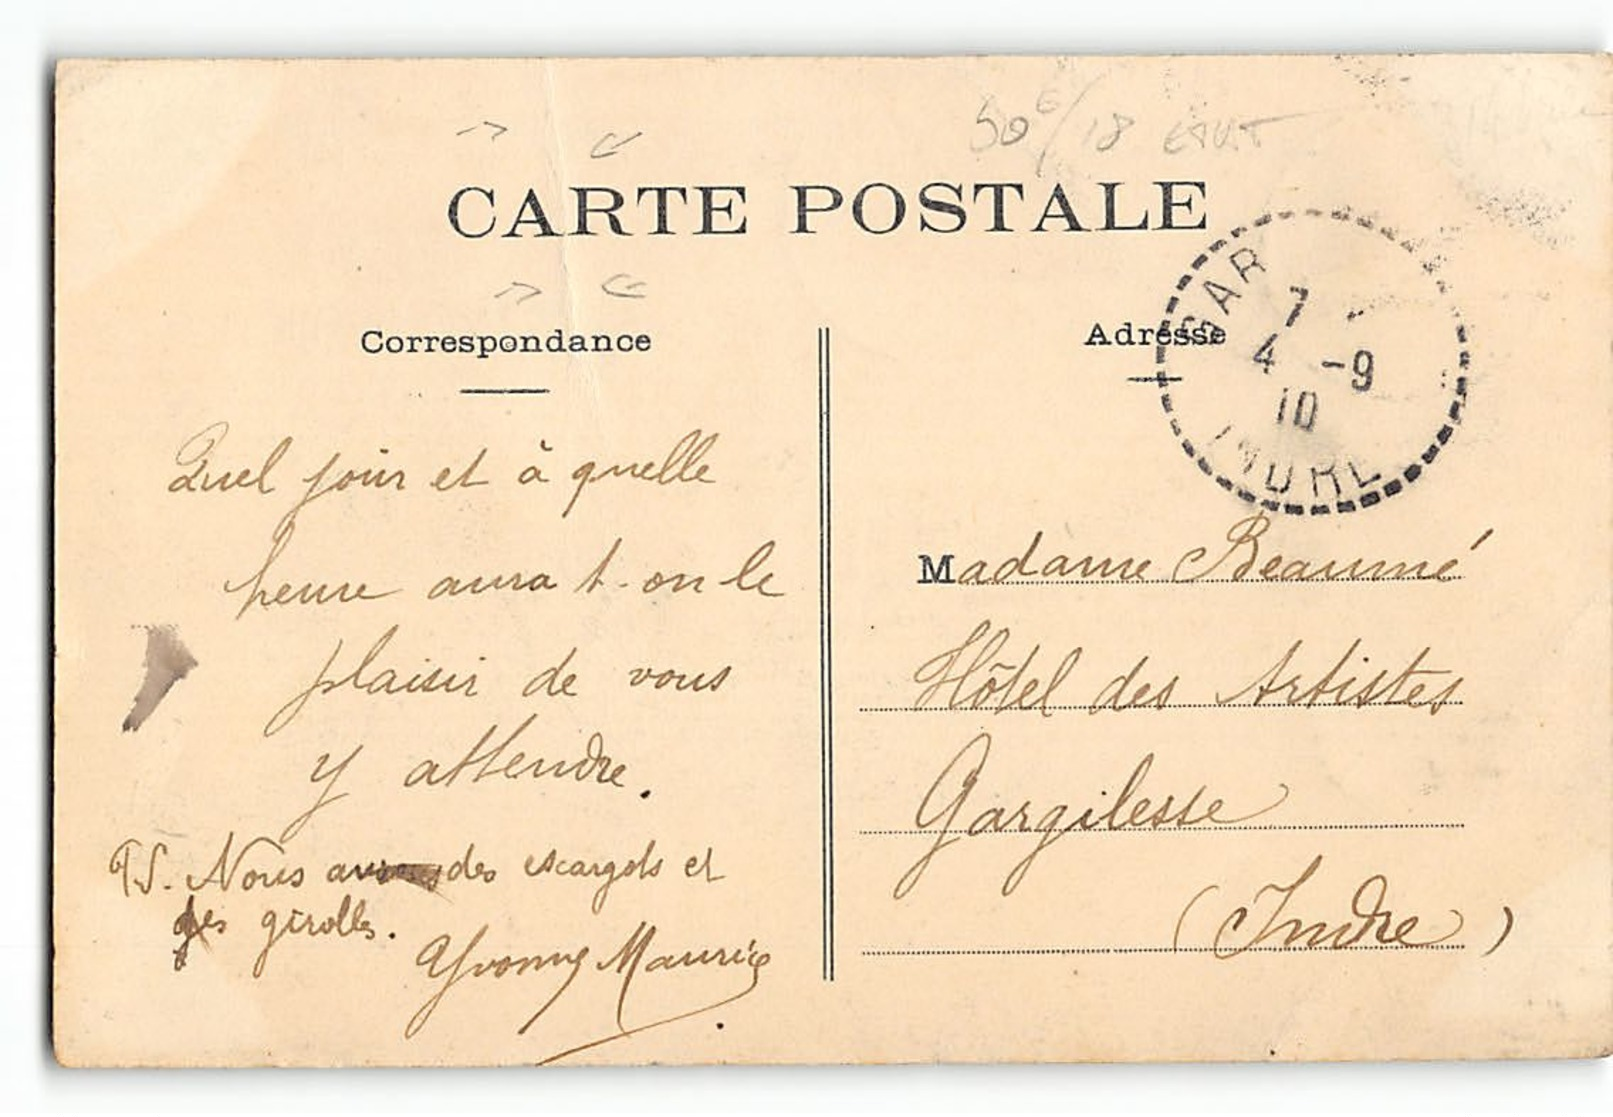 50€/18 état
CARTE POSTALE
Correspondance
Adresse
GAR
7
4 -9
10
INDRE
Quel jour et à quelle
heure aura t-on le
plaisir de vous
y attendre.
PS. Nous avons des escargots et
des girolles.
Yvonne Maurice
Madame Beaumé
Hôtel des Artistes
Gargilesse
(Indre)